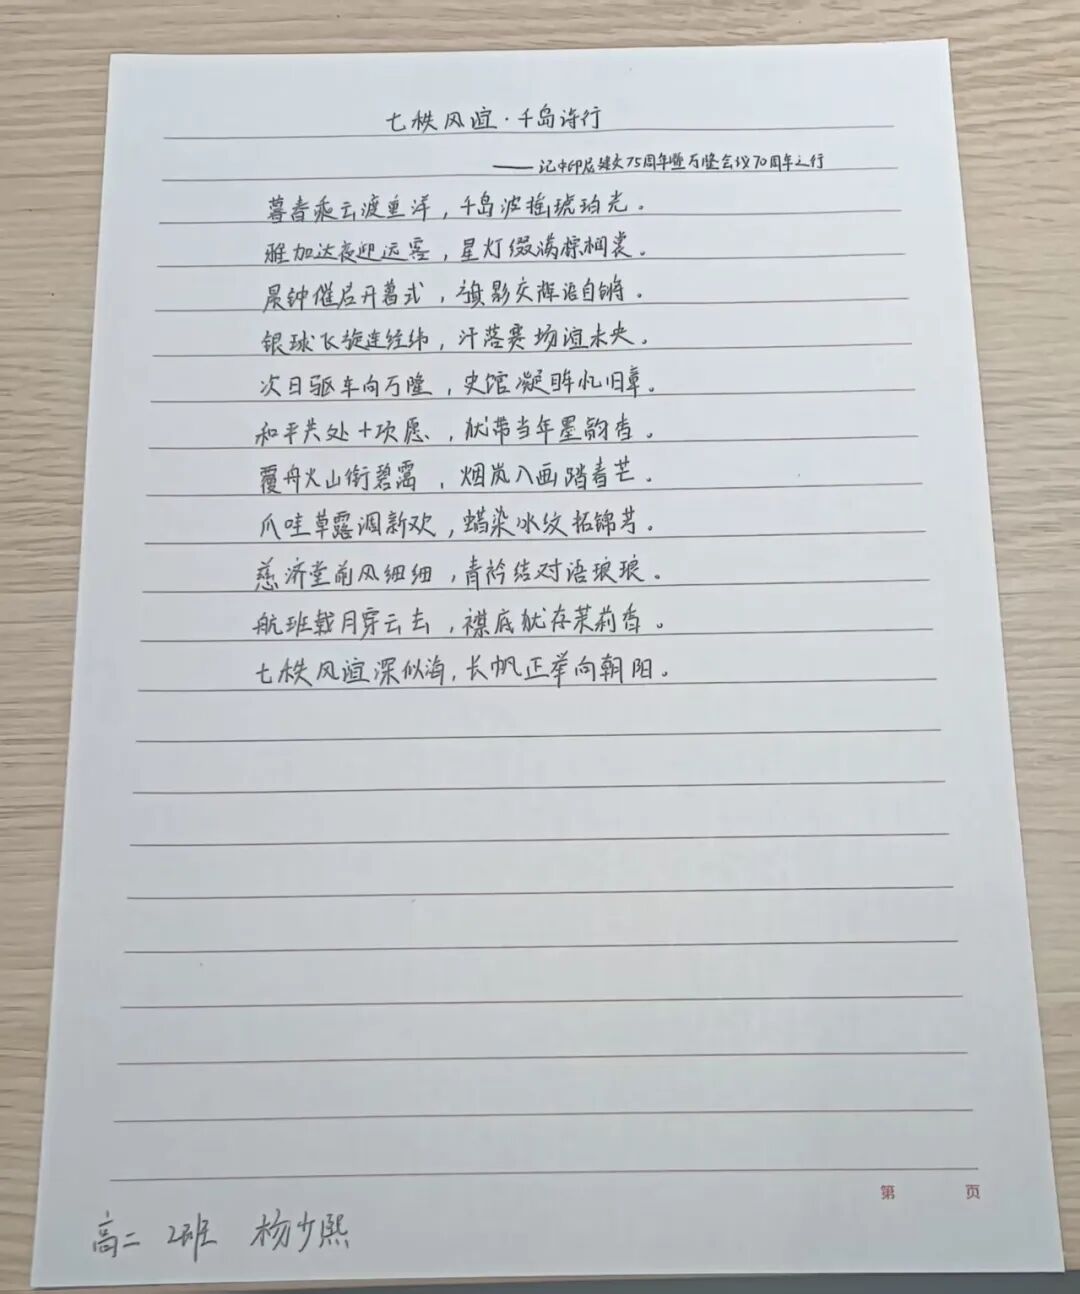 七秩风谊·千岛诗行
——记中印尼建交75周年暨万隆会议70周年之行
暮春乘云渡重洋，千岛波摇琥珀光。
雅加达夜迎远客，星灯缀满棕榈裳。
晨钟催启开幕式，旗影交辉语自锵。
银球飞旋连经纬，汗落赛场谊未央。
次日驱车向万隆，史馆凝眸忆旧章。
和平共处十项愿，犹带当年墨韵香。
覆舟火山衔碧霭，烟岚入画踏青芒。
爪哇草露润新欢，蜡染冰纹拓锦芳。
慈济堂前风细细，青衿结对语琅琅。
航班载月穿云去，襟底犹存茉莉香。
七秩风谊深似海，长帆正举向朝阳。
第 页
高二 2班 杨少熙